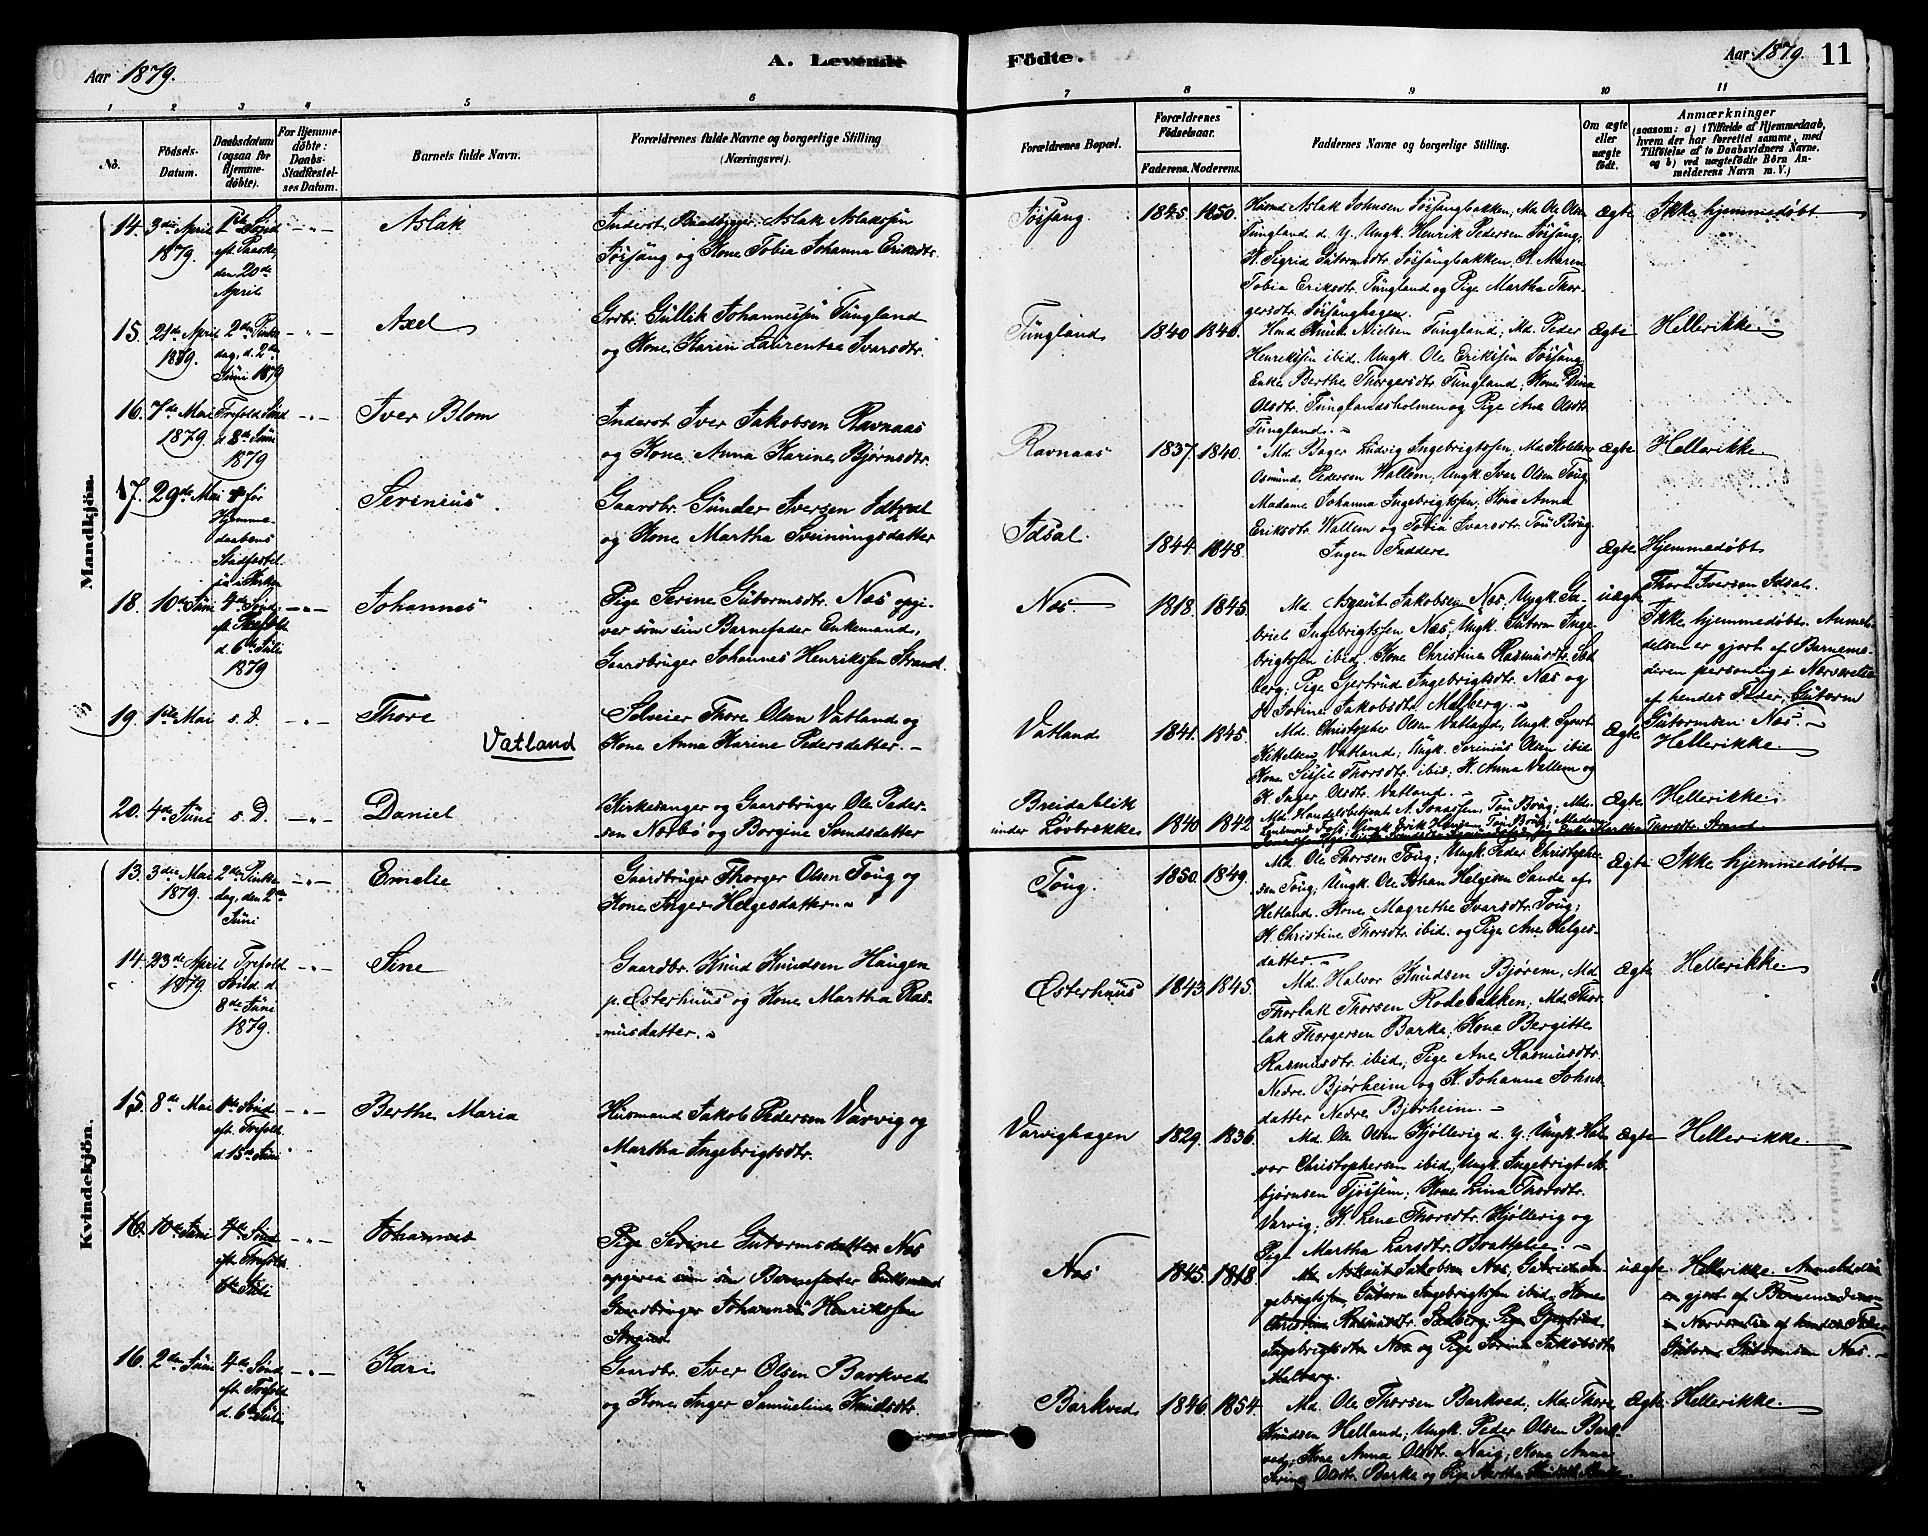 Aar 1879.
A. Levende
Födte.
Aar 1879. 11
1 2 3 4 5 6 7 8 9 10 11
No.
Födsels-
Datum.
Daabsdatum
(ogsaa for
Hjemme-
döbte).
For Hjemme-
döbte:
Daabs-
Stadfæstel-
ses Datum.
Barnets fulde Navn.
Forældrenes fulde Navne og borgerlige Stilling
(Næringsvei).
Forældrenes Bopæl.
Forældrenes
Födselsaar.
Faderens. Moderens.
Faddernes Navne og borgerlige Stilling.
Om ægte
eller
uægte
födt.
Anmærkninger
(saasom: a) i Tilfælde af Hjemmedaab,
hvem der har forrettet samme, med
Tilföielse af to Daabsvidners Navne.
og b) ved uægtefödte Börn An-
melderens Navn m. V.)
Mandkjön.
14. 3die April
1879.
1ste Sönd.
eft. Paaske,
den 20de
April
Aslak
Inderst Aslak Aslaksen
Jøssang og Kone Tobia Johanna Eriksdtr.
Jøssang 1845. 1850.
Husmd Aslak Johnsen Jøssangbakken, Md. Ole Olsen
Tungland d. y. Ungk. Henrik Pedersen Jøssang;
K. Sigrid Gutormsdtr. Jøssangbakken, K. Maren
Tobia Eriksdtr. Tungland og Pige Martha Thor-
gersdtr. Jøssanghagen.
Ægte Ikke hjemmedøbt
15. 21de April
1879.
2den Pinse-
dag, d. 2den
Juni 1879
Axel
Grbr. Gullik Johannessen Tungland
og Kone Karen Laurentse Ivarsdtr.
Tungland 1840 1846.
Nielsen Tungland; Md. Peder
Henriksen ibid. Ungk. Ole Eriksen Jøssang;
Enke Berthe Thorgersdtr Tungland; Kone Dina
Olsdtr. Tunglandsholmen og Pige Ane Olsdtr.
Tungland.
Ægte Hellerikke.
16. 7de Mai
1879.
Trefold. Sönd.
d. 8de Juni
1879
Iver Blom
Inderst Iver Jakobsen Ravnaas
og Kone Anna Karine Bjørnsdtr.
Ravnaas 1837. 1840.
Md. Bager Ludvig Ingebrigtsen, Md.
Osmund Pedersen Wallem, Ungk. Ivar Olsen Toug
Madame Johanna Ingebrigtsen, Kone Anna
Eriksdtr. Wallem og Tobia Ivarsdtr. Tou Brug
Ægte Hellerikke
17. 29de Mai
for
Hjemme-
daabens
Stadfæstel-
se i Kirken
Serinius
Gaardbr. Gunder Iversen Idsal
og Kone Martha Sveinungsdatter
Idsal. 1844. 1848.
Ingen Faddere
Ægte Hjemmedøbt
af
Thore Iversen Idsal.
18. 10de Juni
4de Sönd.
eft. Trefold.
d. 6te Juli
1879
Johannes
Pige Serine Gutormsdtr. Næs opgi-
ver som sin Barnefader Enkemand,
Gaardbruger Johannes Henriksen Strand.
Næs 1818. 1845.
Md. Asgaut Jakobsen Næs, Ungk. Ga-
briel Ingebrigtsen Næs; Ungk. Gutorm Inge-
brigtsen ibid. Kone Christine Rasmusdtr. Sæd-
berg, Pige Gjertrud Ingebrigtsdtr. Næs og
Serine Jakobsdtr.
uægte
Ikke hjemmedøbt. Anmel-
delsen er gjort af Barnemo-
deren personlig i Nærværelse
af hendes Fader, Gutorm
Gutormsen Næs.
19. 1ste Mai s. D.
Thore
Vatland
Selveier Thore Olsen Vatland og
Kone Anna Karine Pedersdatter.
Vatland 1841. 1845.
Md. Christopher Olsen Vatland, Ungk. Sjurt
Kittelsen Vatland; Ungk. Serinius Olsen ibid
Kone Sissel Thorsdtr. ibid; K. Anna Vallem og
K. Inger Olsdtr. Vatland.
Ægte Hellerikke.
20. 4de Juni s. D.
Daniel
Kirkesanger og Gaardbruger Ole Peder-
sen Norbø og Borgine Svendsdatter
Breidablik
under Løvbrække 1840 1842
Md. Handelsbetjent A. Jonassen, Tou Brug;
Ægte Hellerikke.
Kvindekjön.
13. 3die Mai
1879.
2den Pinse-
dag, den 2den
Juni
Emelie
Gaardbruger Thorger Olsen Toug og
Kone Inger Helgesdatter.
Toug. 1850. 1849.
Md. Ole Thorsen Toug; Ungk. Peder Christophe-
sen Toug; Ungk. Ole Johan Helgesen Sande af
Hetland. Kone Magrethe Ivarsdtr. Toug;
K. Christine Thorsdtr. ibid. og Pige Ane Helges-
datter.
Ægte Ikke hjemmedøbt
14. 23de April
1879.
Trefold.
Sönd. d.
8de Juni
1879.
Sine
Gaardbr. Knud Knudsen Haugen
p. Østerhuus og Kone Martha Ras-
musdatter.
Østerhuus 1843. 1845.
Md. Halvor Knudsen Bjørem, Md
Thorlak Thorsen Rodebakken; Md. Thor-
lak Thorgersen Barke; Kone Bergitte
Rasmusdtr. ibid; Pige Ane Rasmusdtr.
Nedre Bjørheim og K. Johanna Johns-
datter Nedre Bjørheim.
Ægte Hellerikke
15. 8de Mai
1ste Sönd.
eft. Trefold.
d. 15de Juni
Berthe Maria
Husmand Jakob Pedersen Varvig og
Martha Ingebrigtsdtr.
Varvighagen 1829. 1836.
Md. Ole Olsen Kjøllevig d. y; Ungk. Hal-
vor Christophersen ibid; Ungk. Ingebrigt As-
bjørnsen Tjøssem; Kone Lina Thorsdtr.
Varvig; K. Lene Thorsdtr. Kjøllevig og
Pige Martha Larsdtr. Brattelie.
Ægte Hellerikke.
16. 10de Juni
4de Sönd.
eft. Trefold.
6te Juli
Johannes
Pige Serine Gutormsdatter Næs
opgiver som sin Barnefader Enkemand
Gaardbruger Johannes Henriksen
Strand
Næs 1845. 1818.
Md. Askaut Jakobsen Næs, In-
gebrigtsen, Gutorm Ingebrigtsen ibid. Kone
Christine Rasmusdtr. Sædberg, Pige Gjertrud
Ingebrigtsdtr. Næs og Pige Serine Jakobsdtr.
uægte. Hellerikke Anmeldelsen
er gjort af Barnemoderen
i Nærværelse af hendes Fader
Gutorm Gutormsen Næs.
16. 2den Juni
4de Sönd.
eft. Trefold.
d. 6te Juli
Kari
Gaardbr. Iver Olsen Barkved
og Kone Inger Samueline Knudsdtr.
Barkved 1846. 1854.
Md. Ole Thorsen Barkved, Md. Thore
Knudsen Helland; Ungk. Peder Olsen Bark-
ved; Kone Anna Olsdtr. Kone Anne
Serine Olsdtr. Barke og Pige Martha
Ægte Hellerikke.